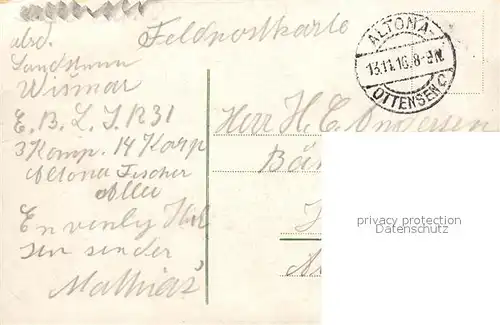 Feldpostkarte
abs.
Landsturm
Wismar
E. B. L. I. R 31
3 Komp. 14 Korp
Altona Fischer
Allee
En venlig Hil
sen sender
Mathias
ALTONA-
13.11.16. 8-9N.
OTTENSEN C
Herr H. C. Andersen
privacy protection
Datenschutz